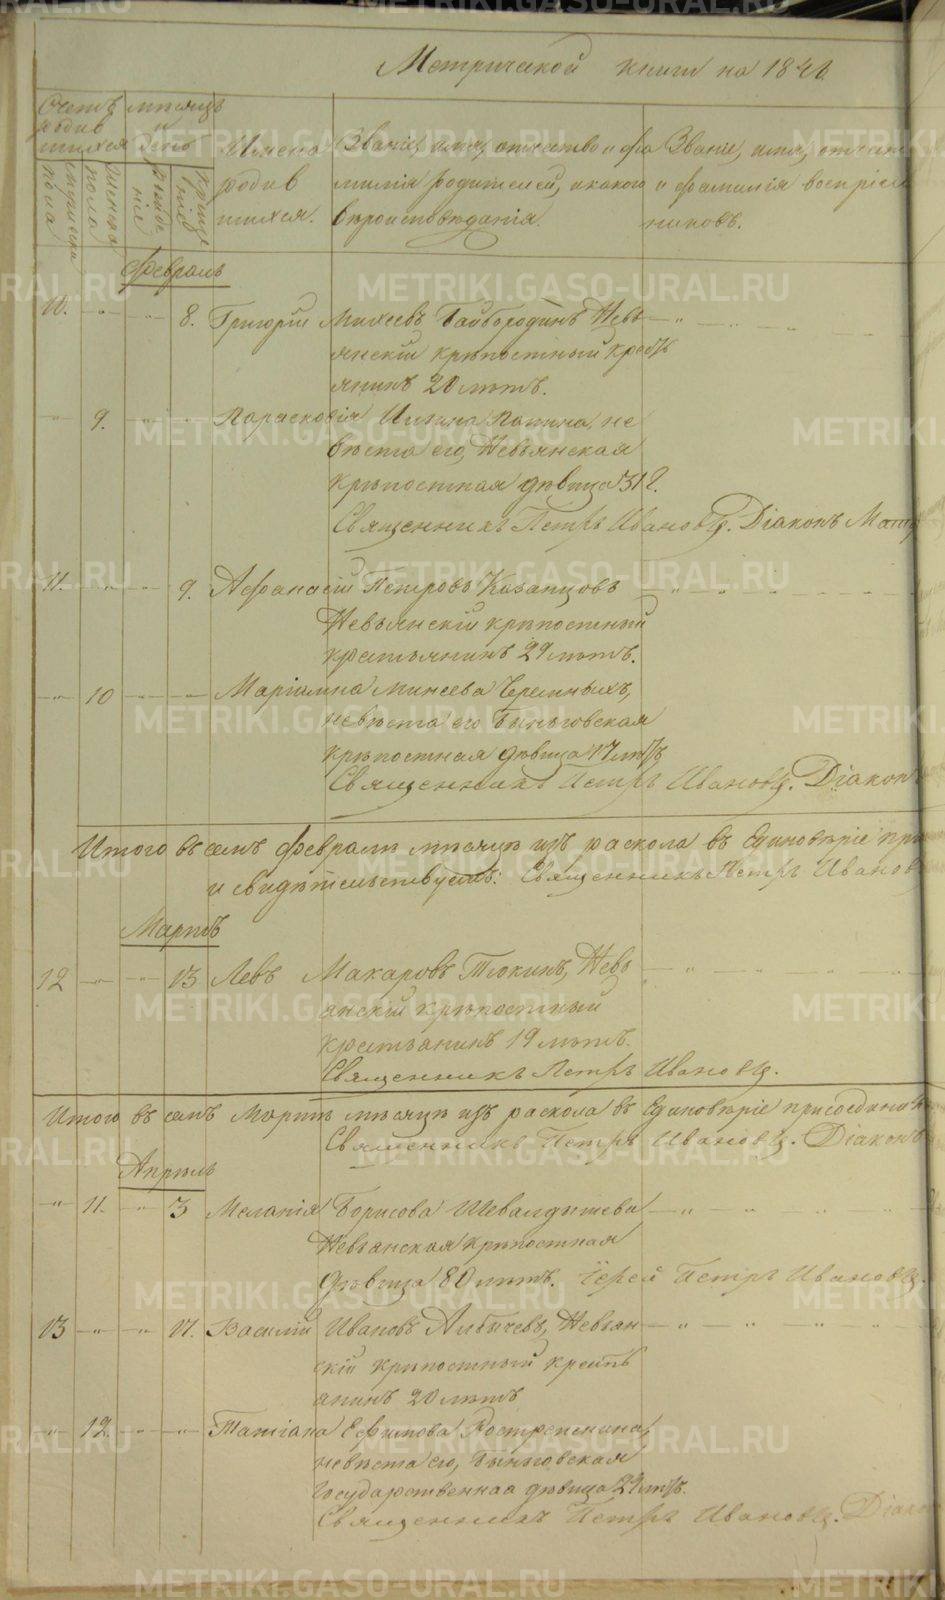 Метрической книги на 184
Счетъ родившихся
мѣсяцъ и день
Имена родившихся.
Званіе, имя, отчество и фамилія родителей, и какого вѣроисповѣданія.
Званіе, имя, отчест и фамилія воспріем никовъ.
мужеска пола
женска пола
рожденіе
крещеніе
Февраль
10. -"- -"- 8. Григорій Михеевъ Байбородинъ Невь
янскій крѣпостный крест
янинъ 20 лѣтъ.
-"- 9. -"- -"- Парасковія Ильина Папина, не
вѣста его, Невьянская
крѣпостная дѣвица 31 г.
Священникъ Петръ Ивановъ. Діаконъ
11. -"- -"- 9. Афанасій Петровъ Казанцовъ
Невьянскій крѣпостный
крестьянинъ 29 лѣтъ.
-"- 10 -"- -"- Маріамна Минеева Черемныхъ,
невѣста его Быньговская
крѣпостная дѣвица 17 лѣтъ
Священникъ Петръ Ивановъ. Діаконъ
Итого въ семъ Февралѣ мѣсяцѣ изъ раскола въ Единовѣріе при
и свидѣтельствуемъ: Священникъ Петръ Иванов
Мартъ
12 -"- -"- 13 Левъ Макаровъ Тюкинъ, Невь
янскій крѣпостный
крестьянинъ 19 лѣтъ.
Священникъ Петръ Ивановъ.
Итого въ семъ Мартѣ мѣсяцѣ изъ раскола въ Единовѣріе присоедин
Священникъ Петръ Ивановъ. Діаконъ
Апрѣль
-"- 11. -"- 3 Меланія Борисова Шевалдышева
Невьянская крѣпостная
дѣвица 80 лѣтъ. Іерей Петръ Ивановъ.
13 -"- -"- 17. Василій Ивановъ Алыпчевъ, Невьян
скій крѣпостный кресть
янинъ 20 лѣтъ
-"- 12. -"- -"- Татіана Ефимова Растрепенина,
невѣста его, Быньговская
государственная дѣвица 22 лѣтъ.
Священникъ Петръ Ивановъ. Діако
METRIKI.GASO-URAL.RU